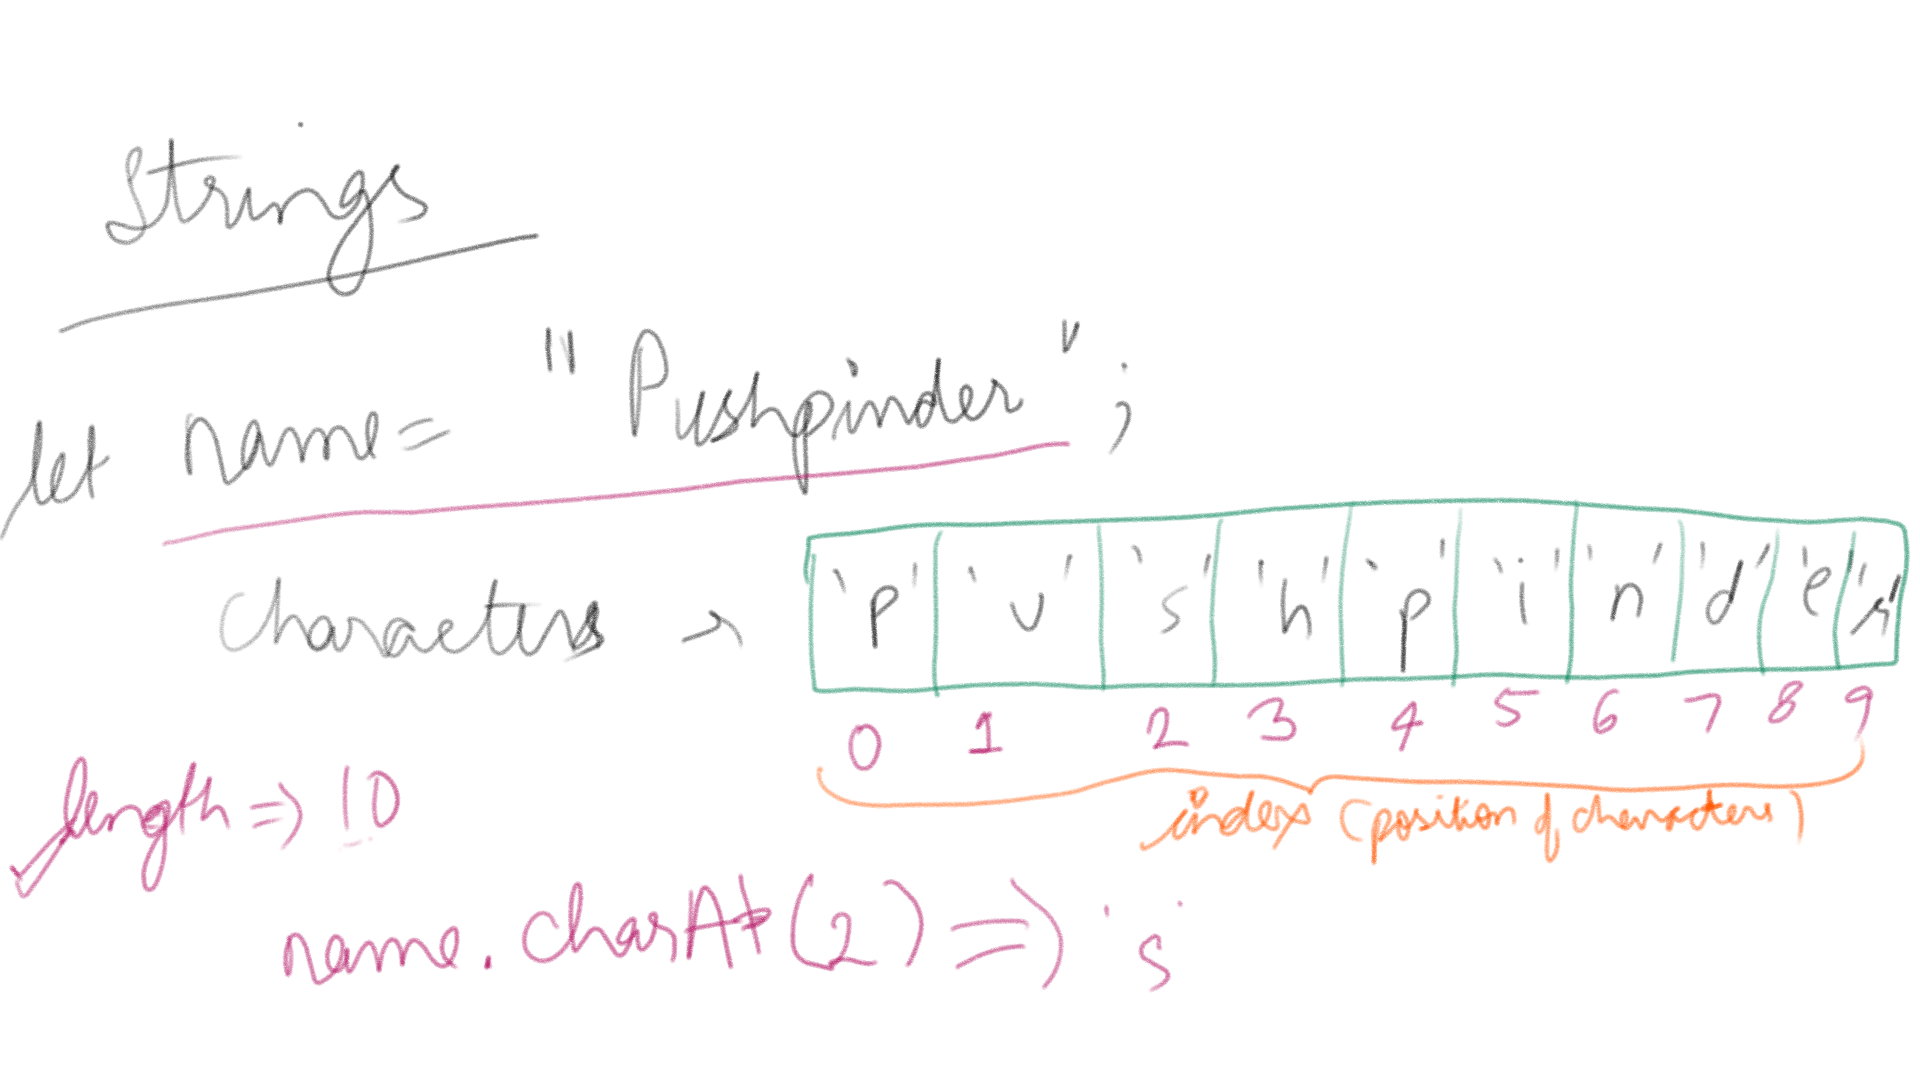 Strings
let name = "Pushpinder";
characters → 'P' 'u' 's' 'h' 'p' 'i' 'n' 'd' 'e' 'r'
0 1 2 3 4 5 6 7 8 9
index (position of characters)
length => 10
name.charAt(2) => 's'